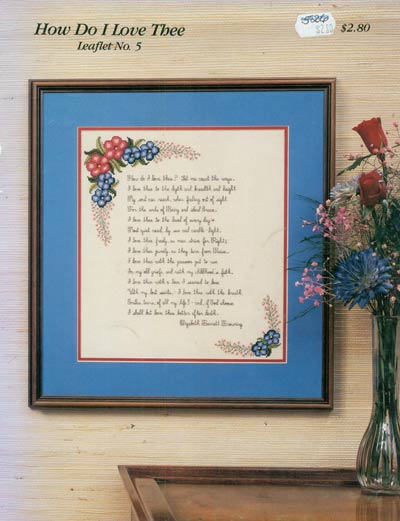 How Do I Love Thee
Leaflet No. 5
$2.80
How do I love thee? Let me count the ways.
I love thee to the depth and breadth and height
My soul can reach, when feeling out of sight
For the ends of Being and ideal Grace.
I love thee to the level of every day's
Most quiet need, by sun and candle-light.
I love thee freely, as men strive for Right;
I love thee purely, as they turn from Praise.
I love thee with the passion put to use
In my old griefs, and with my childhood's faith.
I love thee with a love I seemed to lose
With my lost saints, - I love thee with the breath,
Smiles, tears, of all my life! - and, if God choose
I shall but love thee better after death.
Elizabeth Barrett Browning